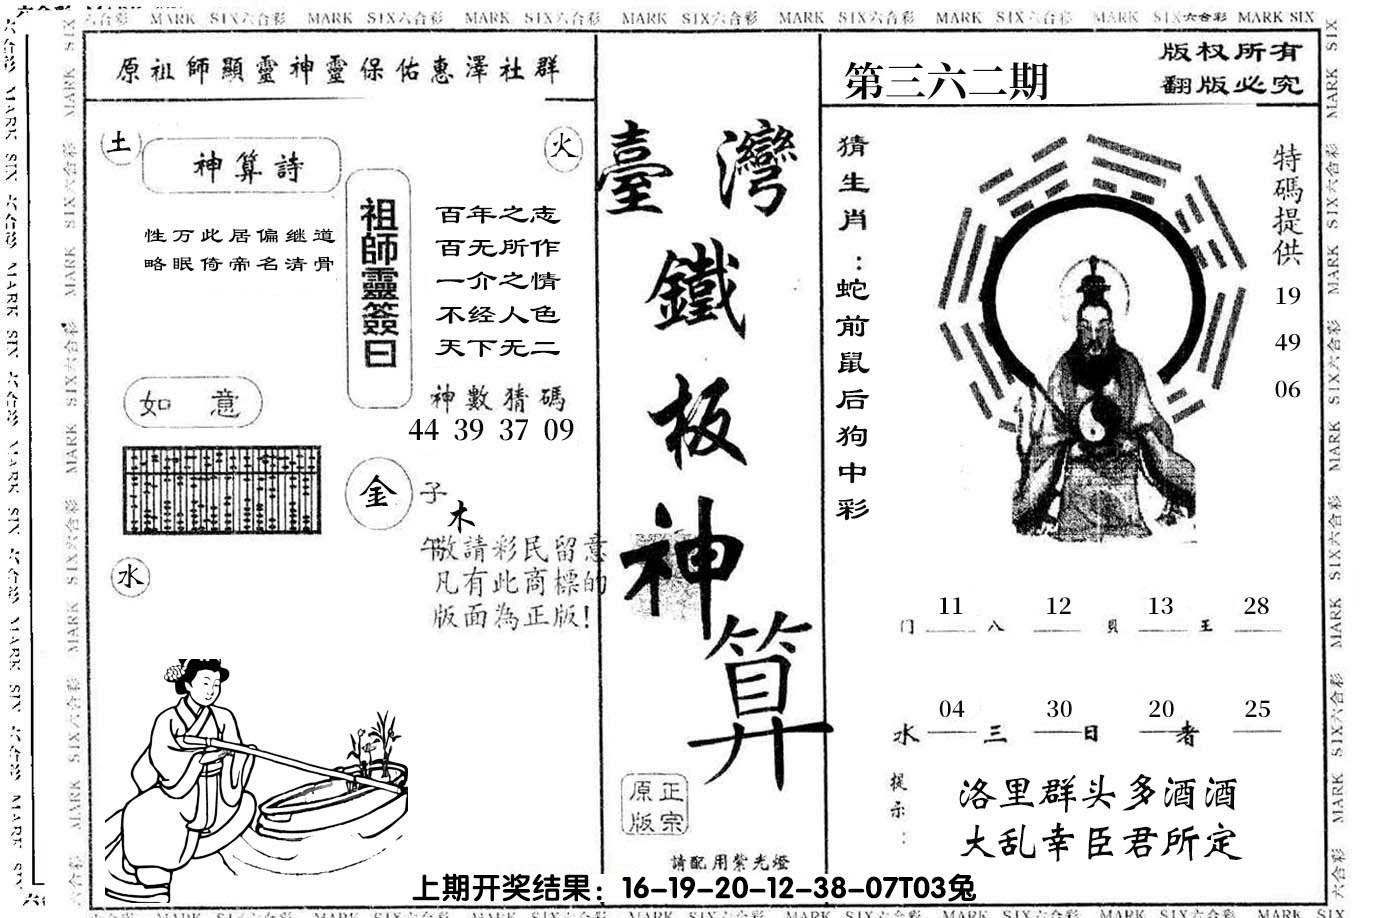 MARK SIX六合彩 MARK SIX六合彩 MARK SIX六合彩 MARK SIX六合彩 MARK SIX六合彩 MARK SIX六合彩 MARK SIX六合彩 MARK SIX
原祖師顯靈神靈保佑惠澤社群
土
神算詩
火
性万此居偏继道
略眠倚帝名清骨
祖師靈簽曰
百年之志
百无所作
一介之情
不经人色
天下无二
神數猜碼
44 39 37 09
如意
金
子
木
午
敬請彩民留意
凡有此商標的
版面為正版!
水
臺灣
鐵
板
神
算
正宗
原版
請配用紫光燈
第三六二期
版权所有
翻版必究
猜生肖:蛇前鼠后狗中彩
特碼提供
19
49
06
门 11 八 12 貝 13 王 28
水 04 三 30 日 20 者 25
提示:
洛里群头多酒酒
大乱幸臣君所定
上期开奖结果：16-19-20-12-38-07T03兔